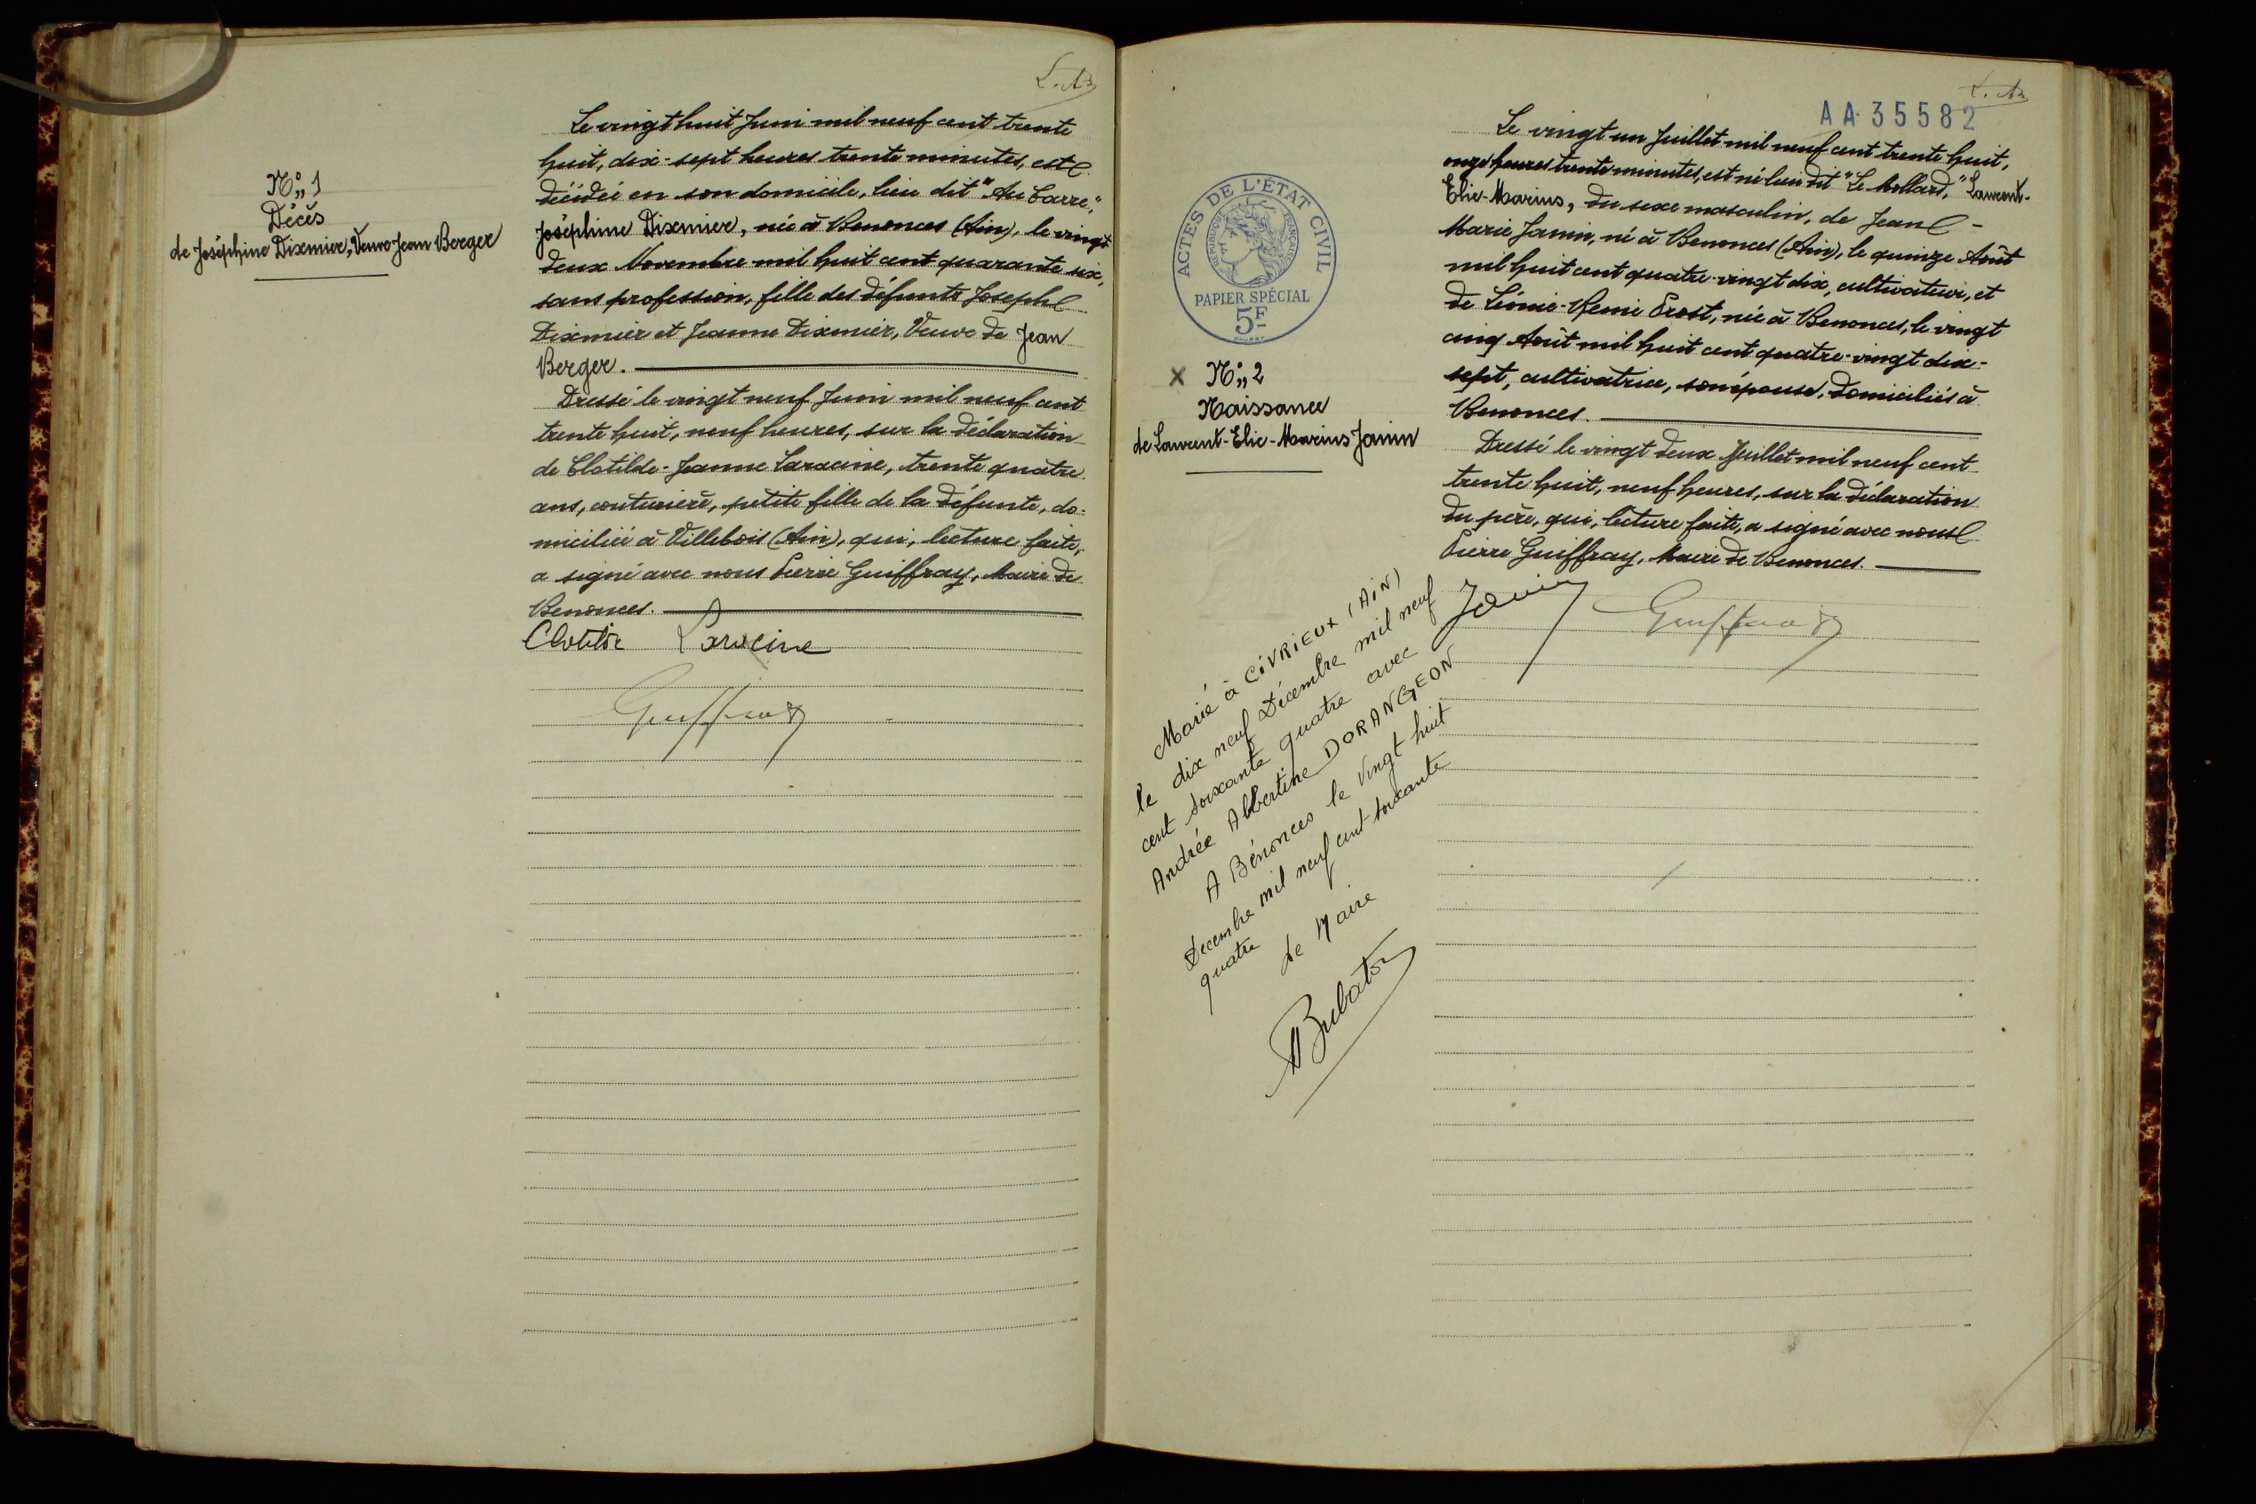 N° 1
Décès
de Joséphine Dixmier, Veuve Jean Berger
Le vingt huit Juin mil neuf cent trente
huit, dix-sept heures trente minutes, est
décédée en son domicile, lieu dit "Au Carre",
Joséphine Dixmier, née à Benonces (Ain), le vingt
deux Novembre mil huit cent quarante six,
sans profession, fille des défunts Joseph
Dixmier et Jeanne Dixmier, Veuve de Jean
Berger.
Dressé le vingt neuf Juin mil neuf cent
trente huit, neuf heures, sur la déclaration
de Clotilde-Jeanne Laracine, trente quatre
ans, couturière, petite fille de la défunte, do-
miciliée à Villebois (Ain), qui, lecture faite,
a signé avec nous Pierre Guiffray, Maire de
Benonces.
Clotilde Laracine
Guiffray
AA 35582
ACTES DE L'ÉTAT CIVIL
RÉPUBLIQUE FRANÇAISE
PAPIER SPÉCIAL
5F
x N° 2
Naissance
de Laurent-Elie-Marius Janin
Le vingt-un Juillet mil neuf cent trente huit,
onze heures trente minutes, est né lieu dit "Le Mollard," Laurent-
Elie-Marius, du sexe masculin, de Jean-
Marie Janin, né à Benonces (Ain), le quinze Août
mil huit cent quatre-vingt dix, cultivateur, et
de Léonie-Remi Prost, née à Benonces, le vingt
cinq Août mil huit cent quatre-vingt dix-
sept, cultivatrice, son épouse, domiciliés à
Benonces.
Dressé le vingt deux Juillet mil neuf cent
trente huit, neuf heures, sur la déclaration
du père, qui, lecture faite, a signé avec nous
Pierre Guiffray, Maire de Benonces.
Janin Guiffray
Marié à CIVRIEUX (AIN)
le dix neuf Décembre mil neuf
cent soixante quatre avec
Andrée Albertine DORANGEON
A Bénonces le vingt huit
Decembre mil neuf cent soixante
quatre
Le Maire